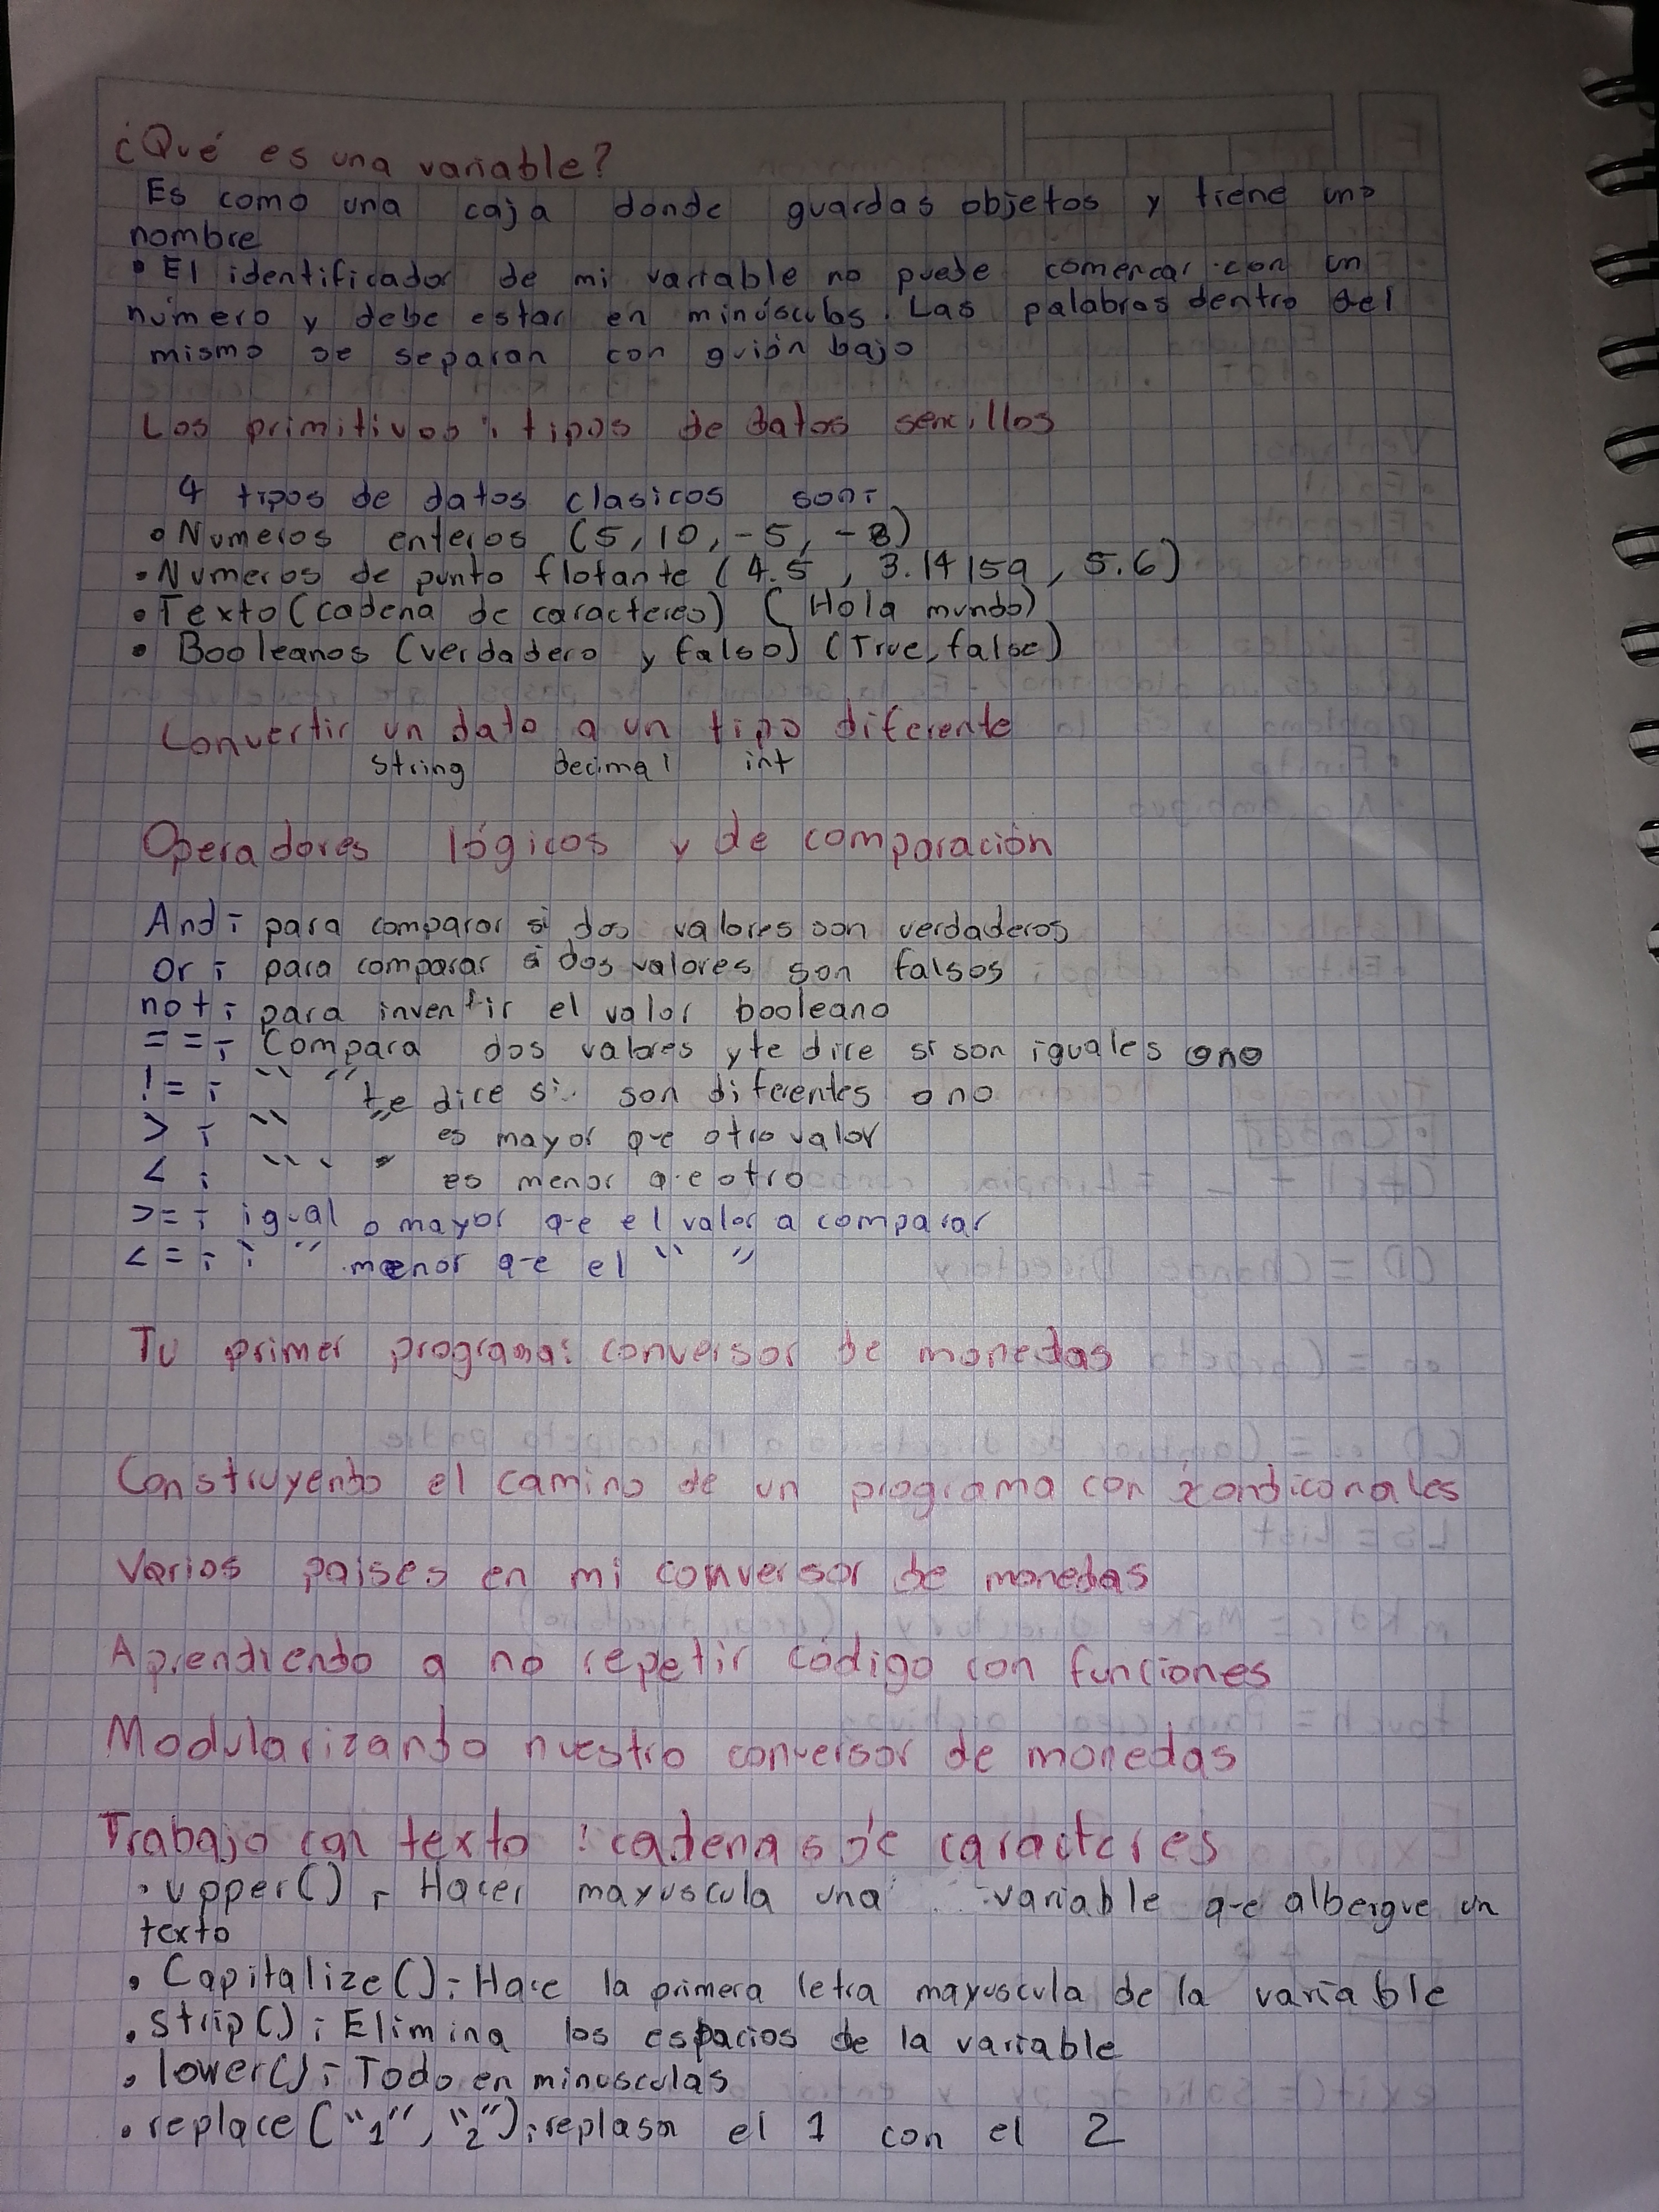 ¿Qué es una variable?
Es como una caja donde guardas objetos y tiene un
nombre
• El identificador de mi variable no puede comenzar con un
número y debe estar en minúsculas. Las palabras dentro del
mismo se separan con guión bajo
Los primitivos: tipos de datos sencillos
4 tipos de datos clasicos son:
• Numeros enteros (5, 10, -5, -8)
• Numeros de punto flotante (4.5, 3.14159, 5.6)
• Texto (cadena de caracteres) (Hola mundo)
• Booleanos (verdadero y falso) (True, false)
Convertir un dato a un tipo diferente
string decimal int
Operadores lógicos y de comparación
And: para comparar si dos valores son verdaderos
or: para comparar si dos valores son falsos
not: para invertir el valor booleano
==: Compara dos valores y te dice si son iguales o no
!=: " " te dice si son diferentes o no
>: " " es mayor que otro valor
<: " " es menor que otro
>=: igual o mayor que el valor a comparar
<=: " " menor que el " "
Tu primer programa: conversor de monedas
Construyendo el camino de un programa con condicionales
Varios paises en mi conversor de monedas
Aprendiendo a no repetir código con funciones
Modularizando nuestro conversor de monedas
Trabajo con texto: cadenas de caracteres
• upper(): Hacer mayuscula una variable que albergue un
texto
• Capitalize(): Hace la primera letra mayuscula de la variable
• strip(): Elimina los espacios de la variable
• lower(): Todo en minusculas
• replace("1", "2"): replasa el 1 con el 2